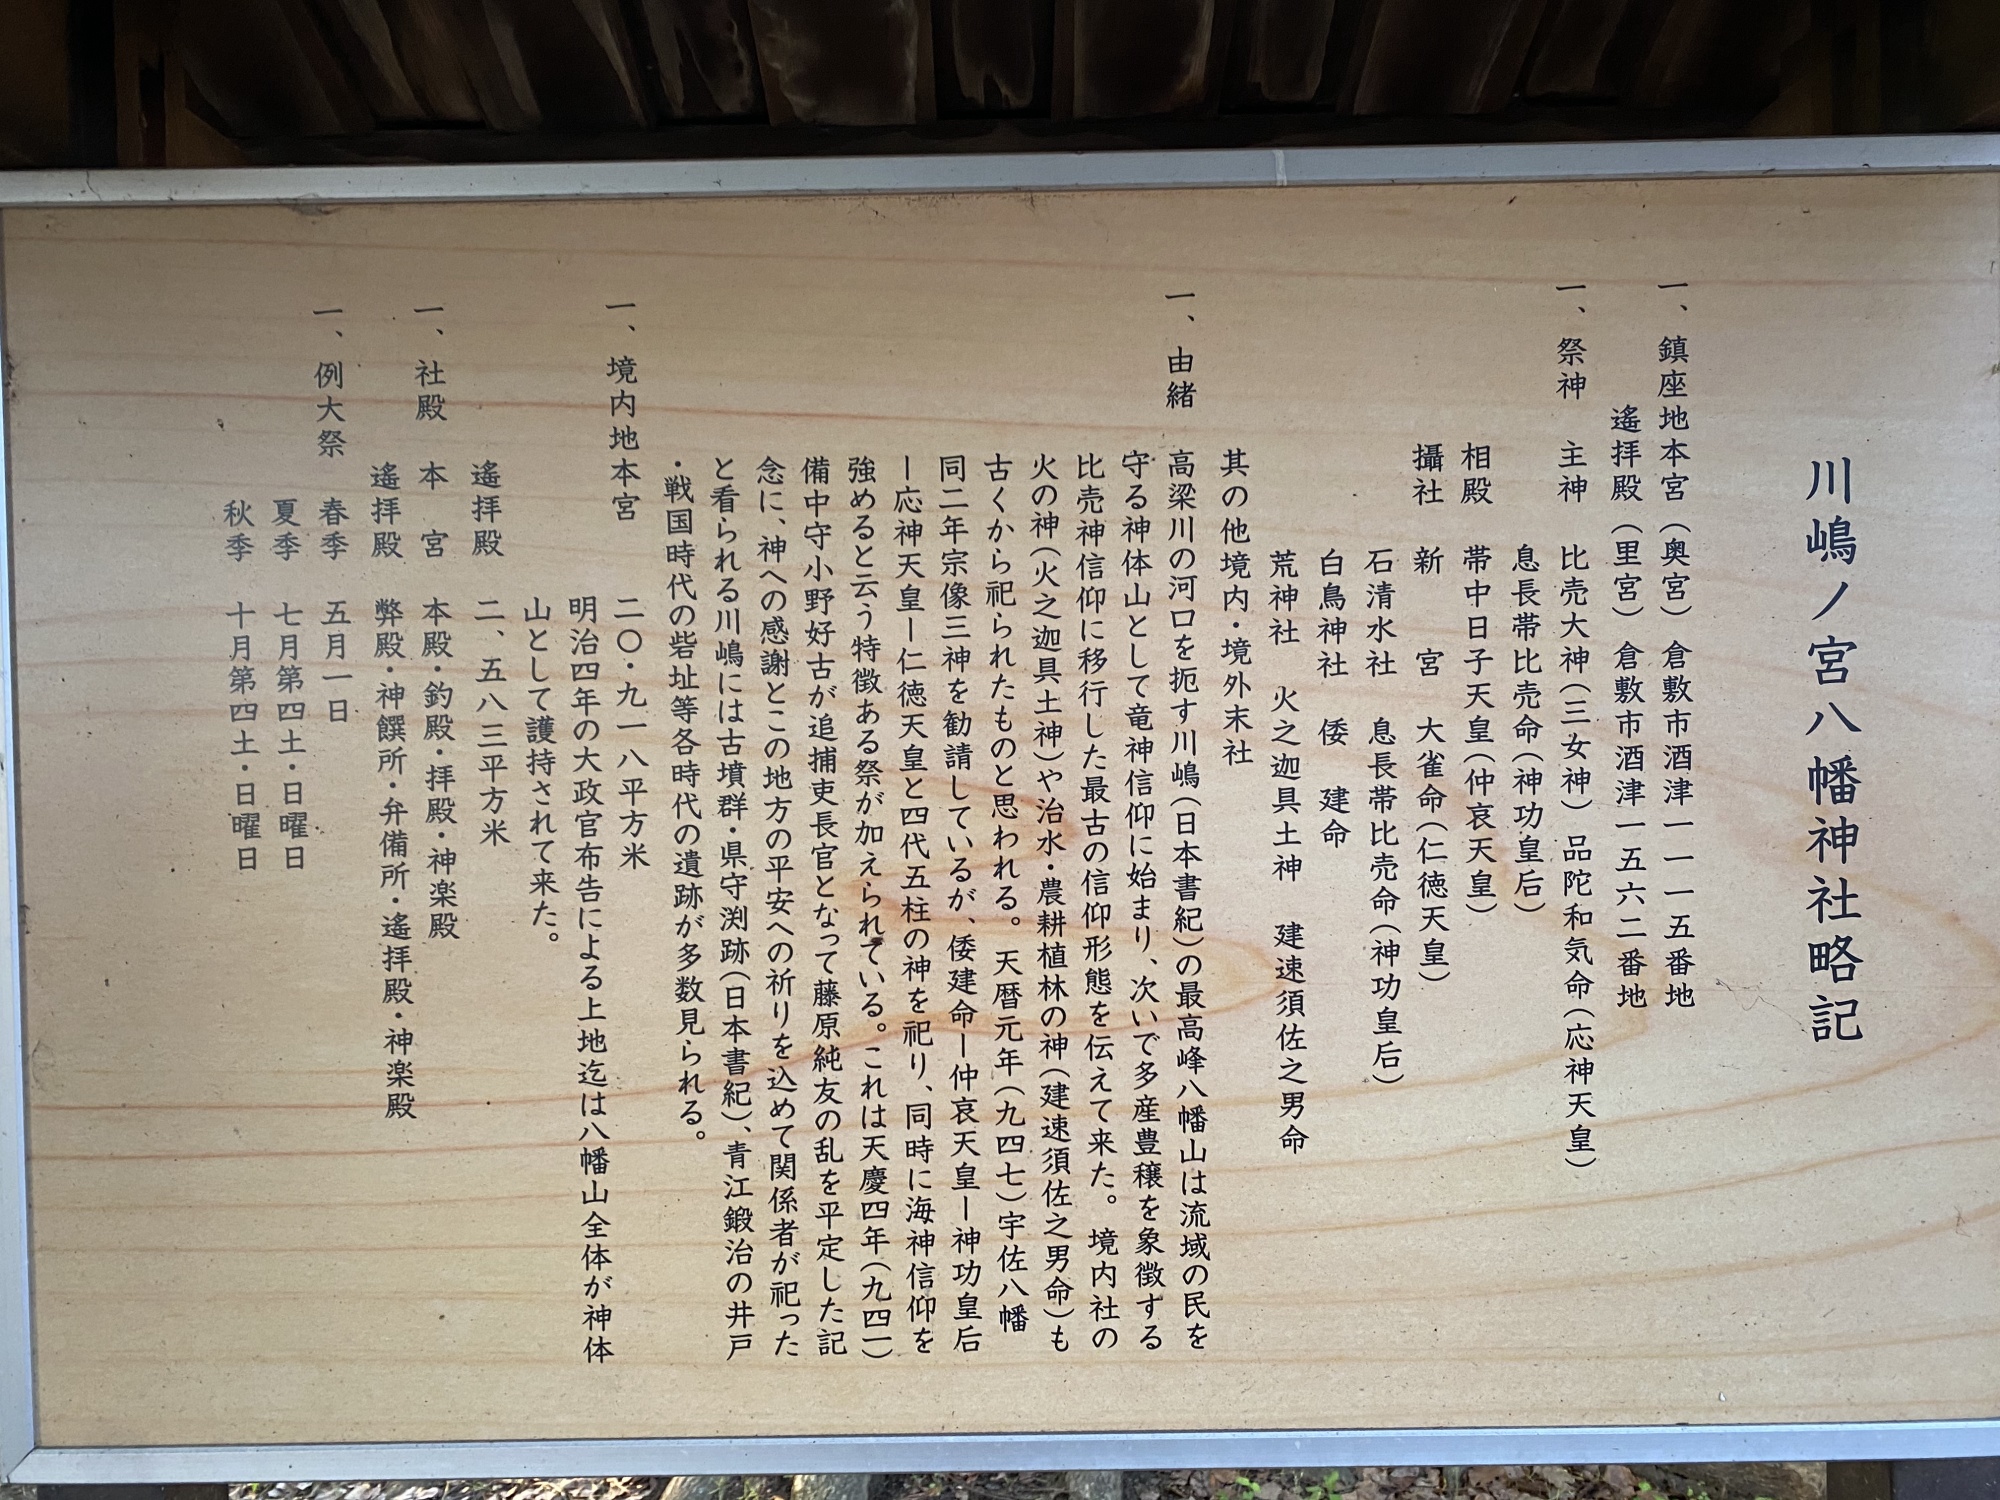 川嶋ノ宮八幡神社略記
一、鎮座地本宮（奥宮）倉敷市酒津一一一五番地
遙拝殿（里宮）倉敷市酒津一五六二番地
一、祭神　主神　比売大神（三女神）品陀和気命（応神天皇）
息長帯比売命（神功皇后）
相殿　帯中日子天皇（仲哀天皇）
攝社　新　宮　大雀命（仁徳天皇）
石清水社　息長帯比売命（神功皇后）
白鳥神社　倭　建命
荒神社　火之迦具土神　建速須佐之男命
其の他境内・境外末社
一、由緒　高梁川の河口を扼す川嶋（日本書紀）の最高峰八幡山は流域の民を
守る神体山として竜神信仰に始まり、次いで多産豊穣を象徴する
比売神信仰に移行した最古の信仰形態を伝えて来た。境内社の
火の神（火之迦具土神）や治水・農耕植林の神（建速須佐之男命）も
古くから祀られたものと思われる。天暦元年（九四七）宇佐八幡
同二年宗像三神を勧請しているが、倭建命ー仲哀天皇ー神功皇后
ー応神天皇ー仁徳天皇と四代五柱の神を祀り、同時に海神信仰を
強めると云う特徴ある祭が加えられている。これは天慶四年（九四一）
備中守小野好古が追捕吏長官となって藤原純友の乱を平定した記
念に、神への感謝とこの地方の平安への祈りを込めて関係者が祀った
と看られる川嶋には古墳群・県守渕跡（日本書紀）、青江鍛治の井戸
・戦国時代の砦址等各時代の遺跡が多数見られる。
一、境内地本宮　二〇・九一八平方米
明治四年の大政官布告による上地迄は八幡山全体が神体
山として護持されて来た。
遙拝殿　二、五八三平方米
一、社殿　本　宮　本殿・釣殿・拝殿・神楽殿
遙拝殿　弊殿・神饌所・弁備所・遙拝殿・神楽殿
一、例大祭　春季　五月一日
夏季　七月第四土・日曜日
秋季　十月第四土・日曜日